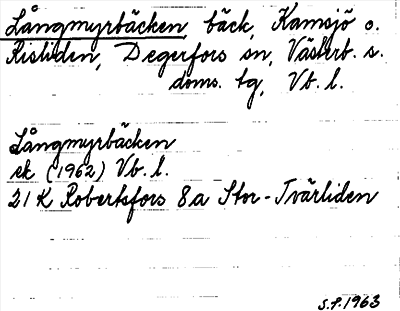 Långmyrbäcken bäck, Kamsjö o.
Risliden, Degerfors sn, Västerb. s.
doms. tg, Vb. l.
Långmyrbäcken
ek (1962) Vb. l.
21 K Robertsfors 8a Stor-Tvärliden
S.P. 1963